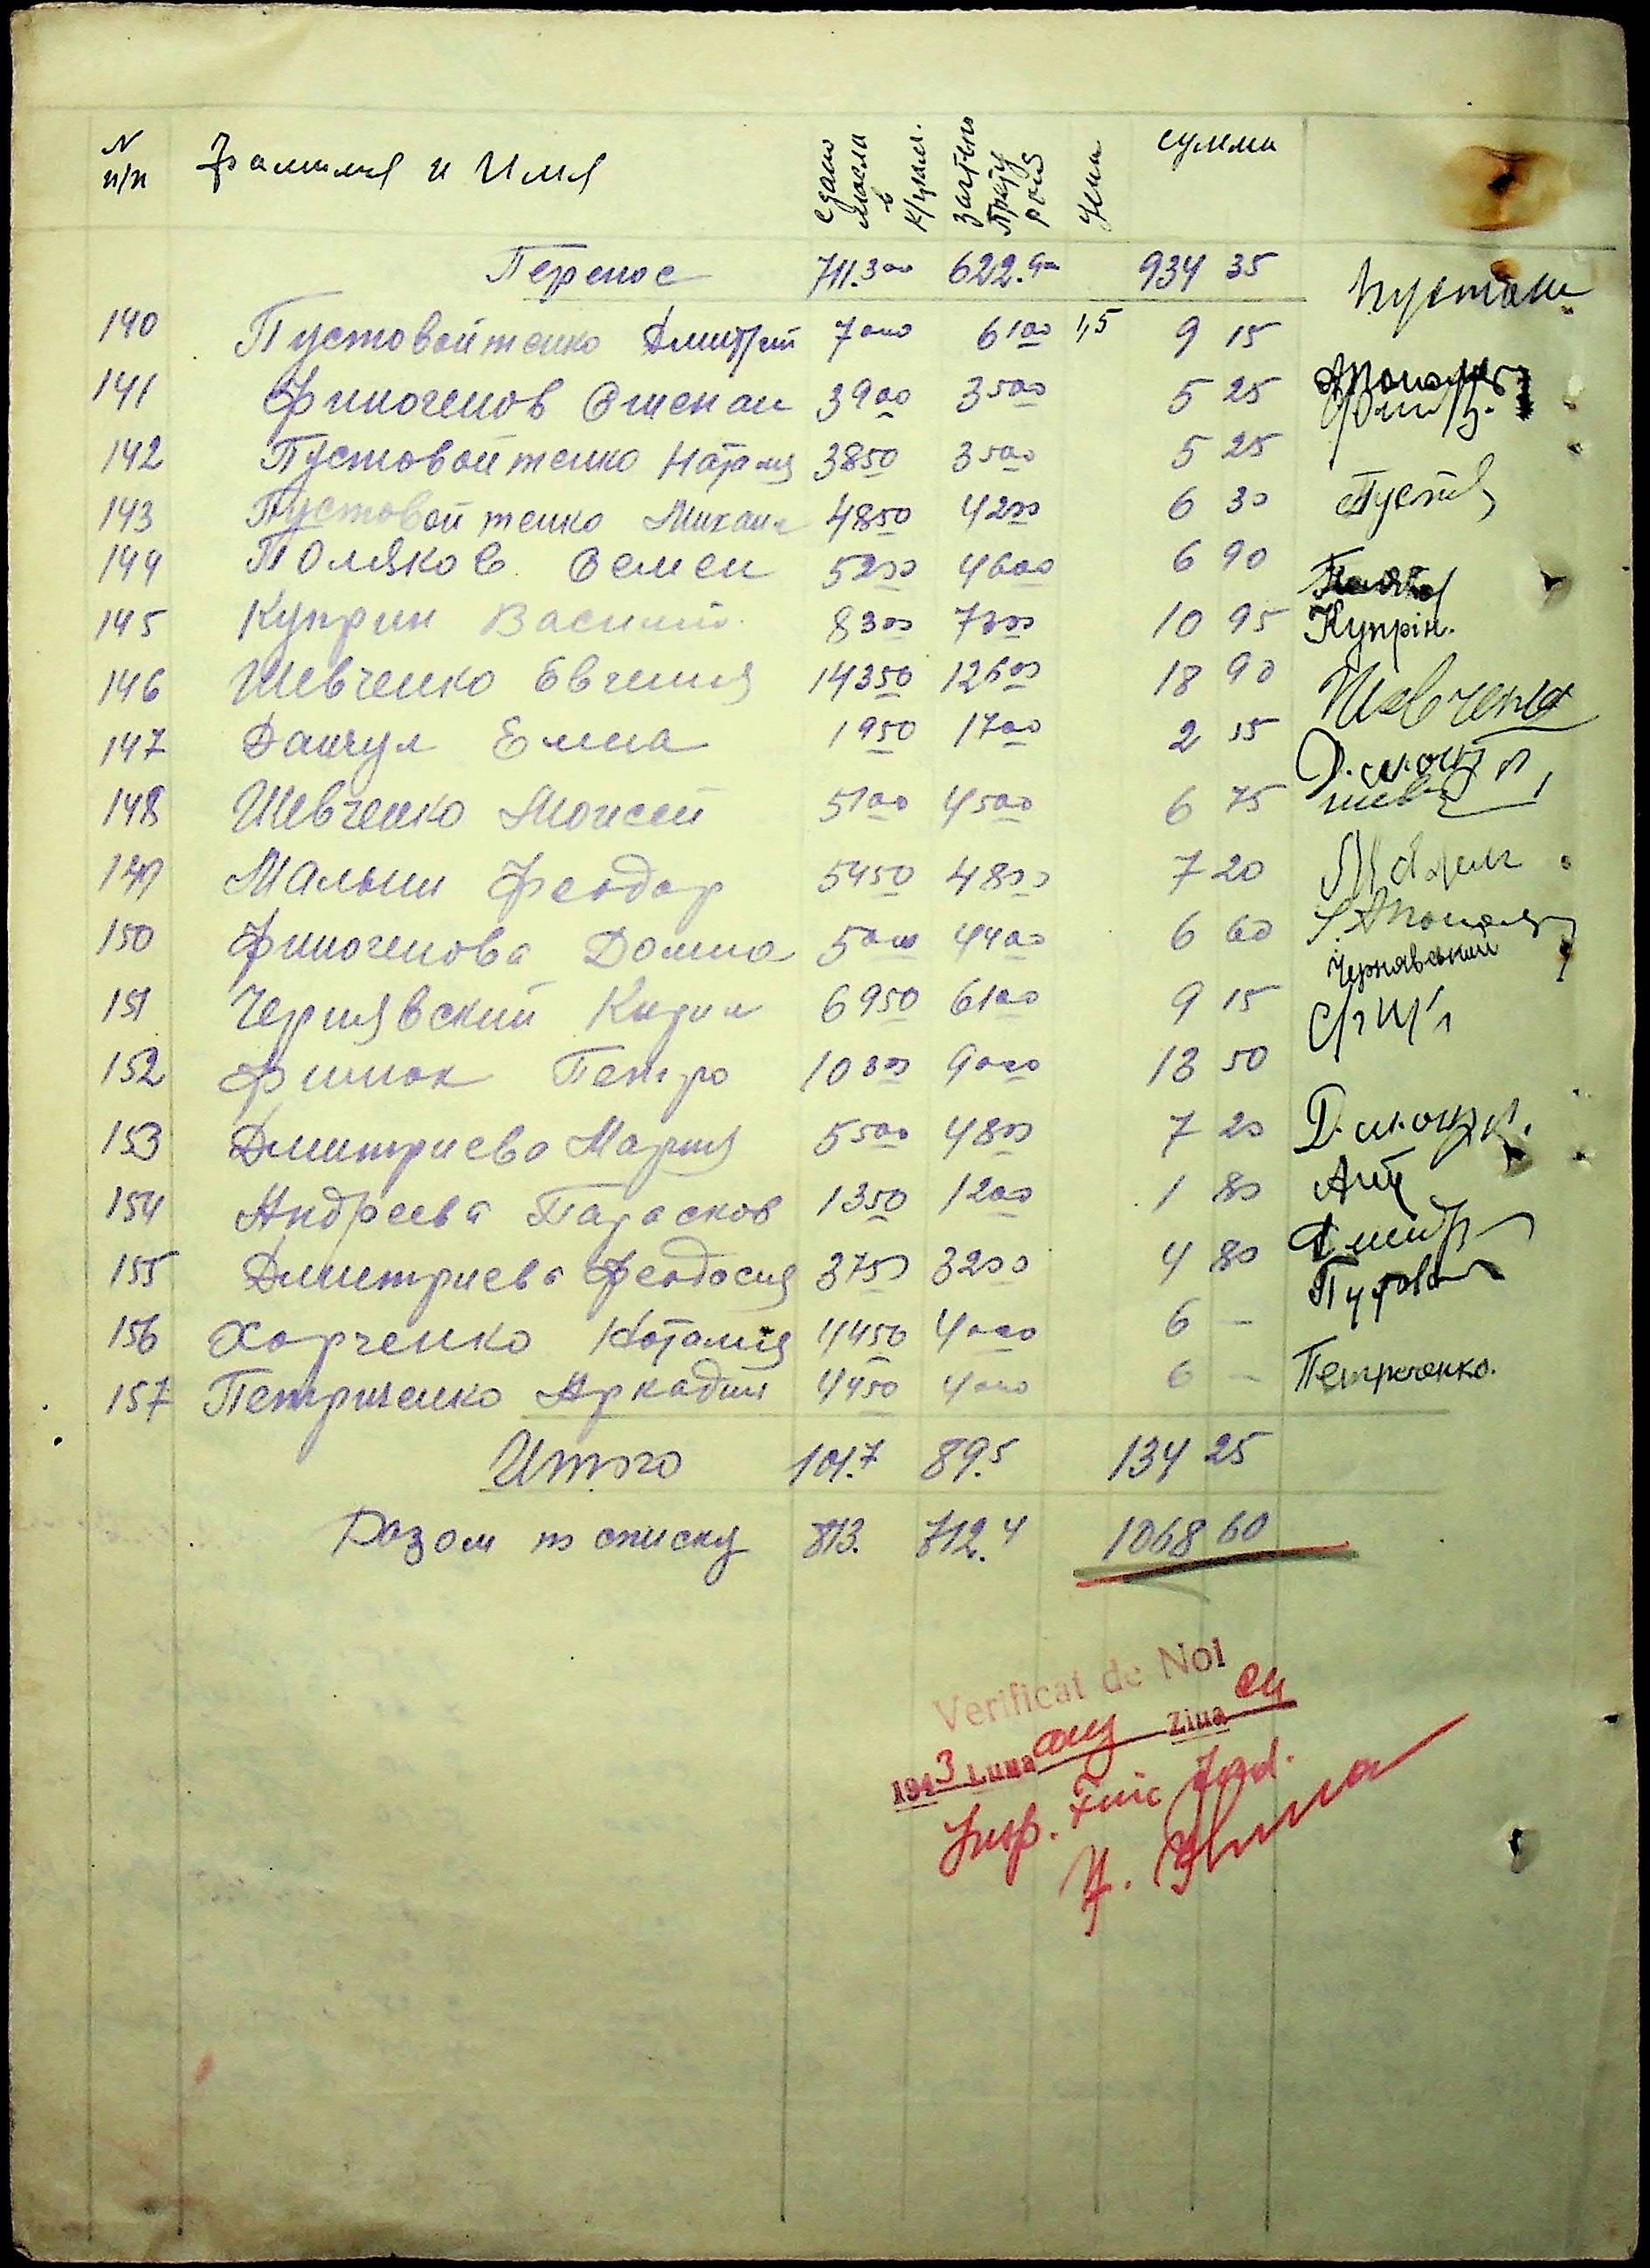 N п/п Фамилия и Имя сдано масла в к/грам. зачтено цена сумма
Перенос 711.300 622.900 934 35
140 Пустовойтенко Дмитрий 7000 6100 1,5 9 15
141 Финогенов Степан 3900 3500 5 25
142 Пустовойтенко Мария 3850 3500 5 25
143 Пустовойтенко Михаил 4850 4200 6 30 Пустов
144 Поляков Семен 5200 4600 6 90
145 Куприн Василий 8300 7300 10 95 Купрін.
146 Шевченко Евгения 14350 12600 18 90 Шевченко
147 Данчул Елена 1950 1700 2 55
148 Шевченко Моисей 5100 4500 6 75
149 Малыш Феодор 5450 4800 7 20
150 Финогенова Домна 5000 4400 6 60
151 Чернявский Кирил 6950 6100 9 15 Чернявский
152 Финюк Петро 10300 9000 13 50
153 Дмитриева Мария 5500 4800 7 20
154 Андреева Парасков 1350 1200 1 80
155 Дмитриева Феодосия 3750 3200 4 80
156 Харченко Наталия 4450 4000 6 –
157 Петриченко Аркадий 4450 4000 6 – Петриченко.
Итого 101.7 89.5 134 25
Разом по списку 813. 712.4 1068 60
Verificat de Noi
1943 Luna aug Ziua
Insp. Finc Jud.